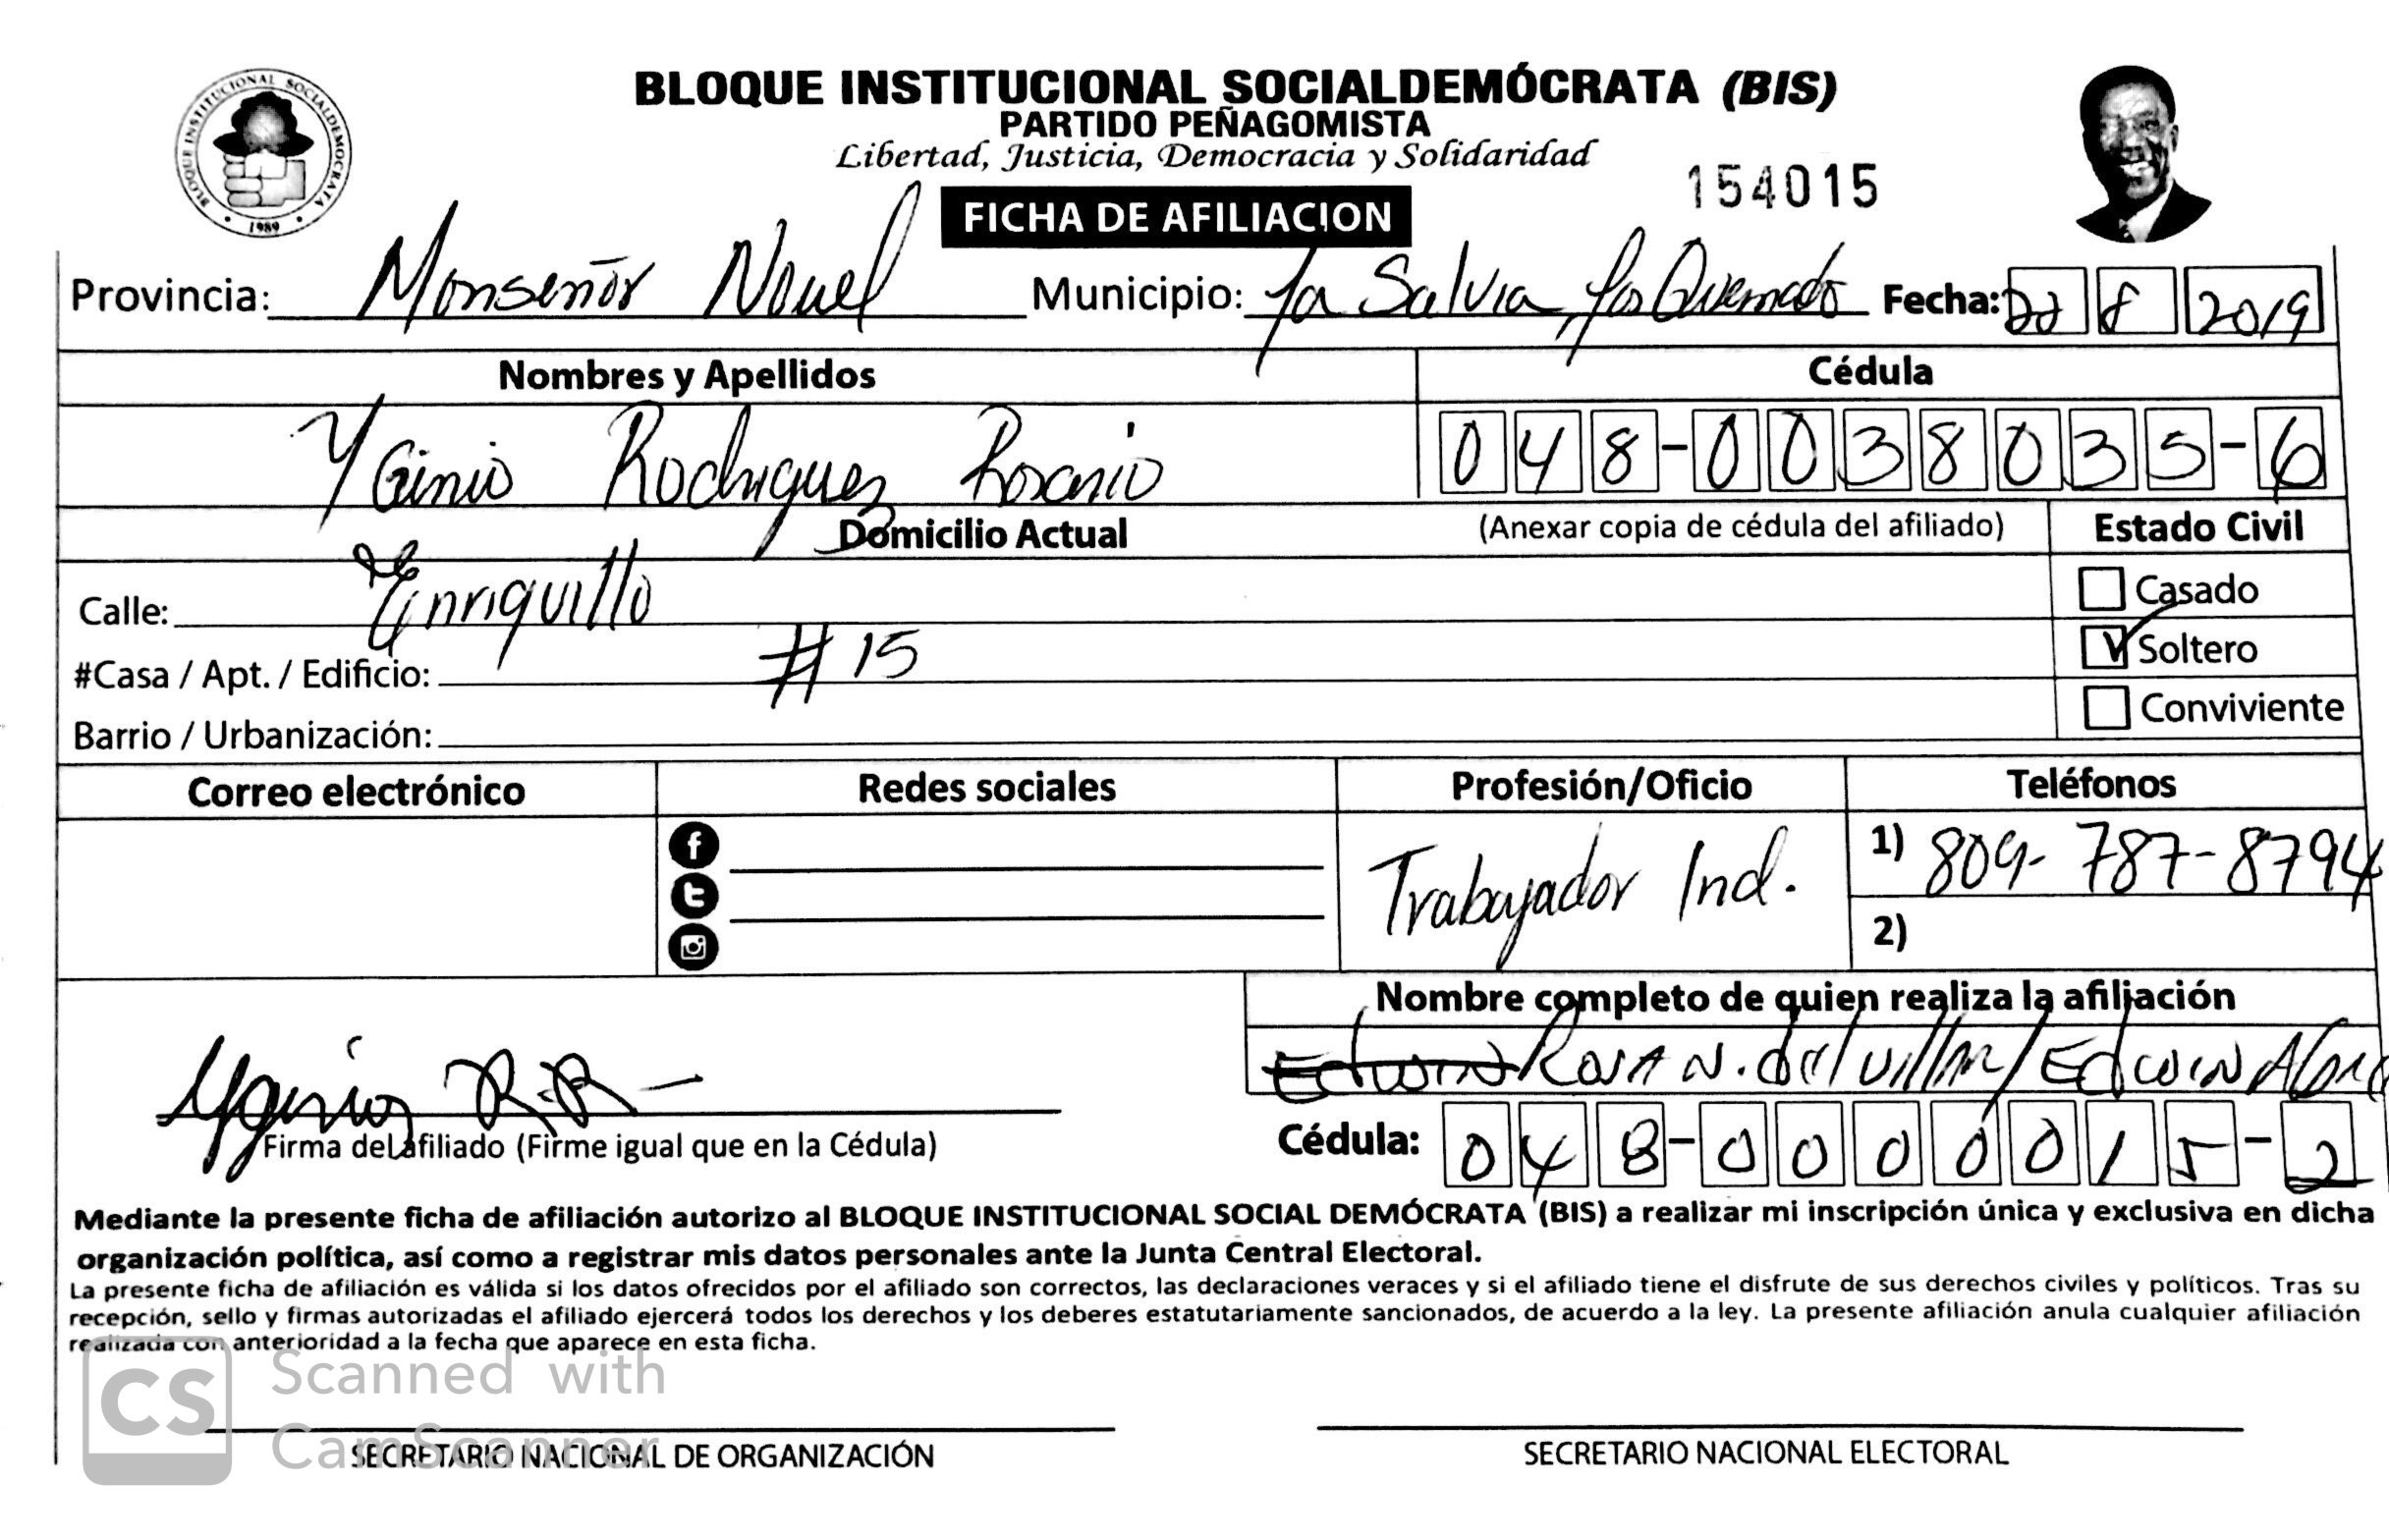 BLOQUE INSTITUCIONAL SOCIALDEMÓCRATA (BIS)
PARTIDO PEÑAGOMISTA
Libertad, Justicia, Democracia y Solidaridad
BLOQUE INSTITUCIONAL SOCIALDEMOCRATA
1989
154015
FICHA DE AFILIACION
Provincia: Monseñor Nouel Municipio: La Salvia, Los Quemado Fecha: 22 8 2019
Nombres y Apellidos Cédula
YGinio Rodriguez Rosario 048-0038035-6
Domicilio Actual (Anexar copia de cédula del afiliado) Estado Civil
Calle: Enriquillo Casado
#Casa / Apt. / Edificio: #15 Soltero
Barrio / Urbanización: Conviviente
Correo electrónico Redes sociales Profesión/Oficio Teléfonos
Trabayador Ind. 1) 809-787-8794
2)
Nombre completo de quien realiza la afiliación
Edwin Rosa N. del Villar/Edwin
Yginio R.R-
Firma del afiliado (Firme igual que en la Cédula) Cédula: 048-0000015-2
Mediante la presente ficha de afiliación autorizo al BLOQUE INSTITUCIONAL SOCIAL DEMÓCRATA (BIS) a realizar mi inscripción única y exclusiva en dicha
organización política, así como a registrar mis datos personales ante la Junta Central Electoral.
La presente ficha de afiliación es válida si los datos ofrecidos por el afiliado son correctos, las declaraciones veraces y si el afiliado tiene el disfrute de sus derechos civiles y políticos. Tras su
recepción, sello y firmas autorizadas el afiliado ejercerá todos los derechos y los deberes estatutariamente sancionados, de acuerdo a la ley. La presente afiliación anula cualquier afiliación
realizada con anterioridad a la fecha que aparece en esta ficha.
CS Scanned with
CamScanner
SECRETARIO NACIONAL DE ORGANIZACIÓN SECRETARIO NACIONAL ELECTORAL